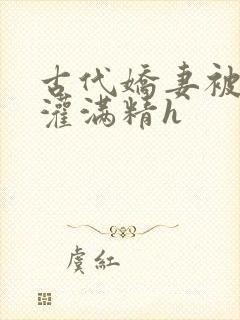 古代嬌妻被
灌满精h
虞紅